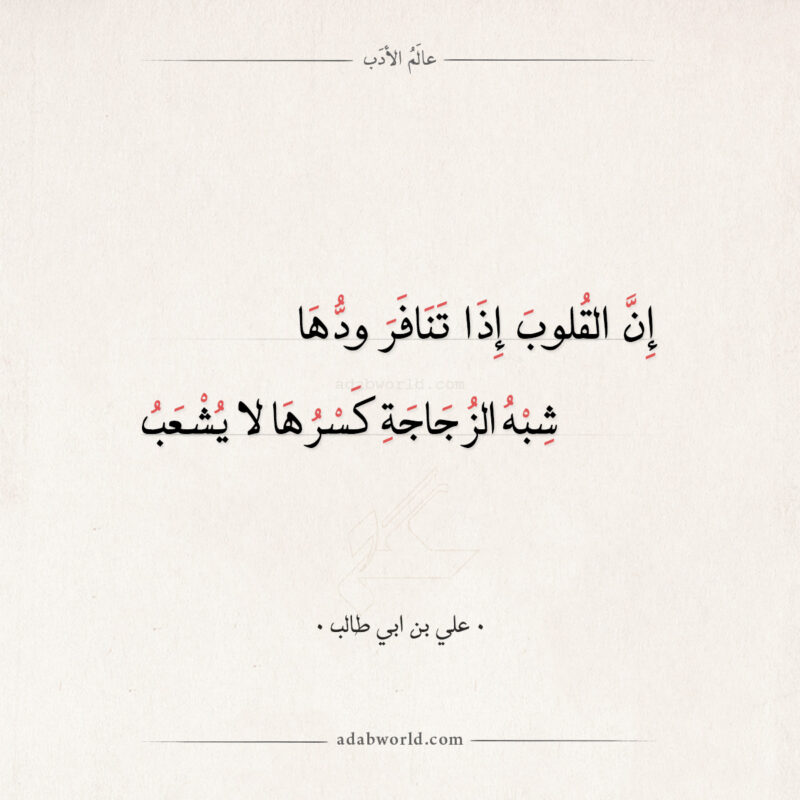 عالَمُ الأدَب
إِنَّ القُلوبَ إِذَا تَنَافَرَ ودُّهَا
adabworld.com
شِبْهُ الزُجَاجَةِ كَسْرُهَا لا يُشْعَبُ
• علي بن ابي طالب •
adabworld.com